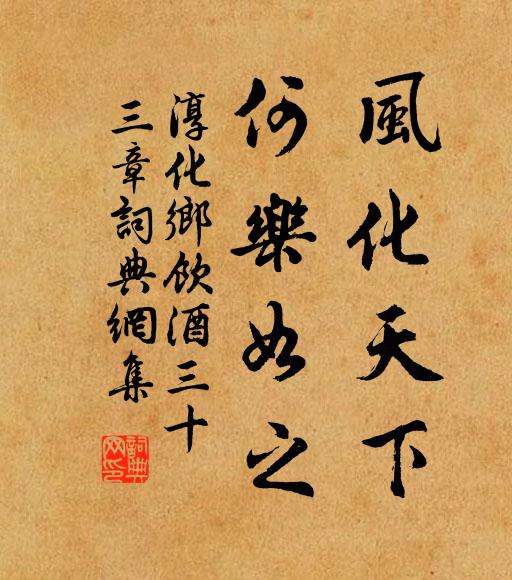 風化天下
何樂如之
淳化鄉飲酒三十
三章詞典網集
詞典网印